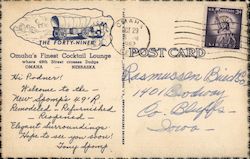 THE FORTY-NINER
Omaha's Finest Cocktail Lounge
where 49th Street crosses Dodge
OMAHA NEBRASKA
OMAHA
OCT 29
POST CARD
Hi Rodner!
Welcome to the -
New Spomp's 49'R
Remodeled - Refurnished
- Reopened -
Elegant Surroundings
Hope to see you soon!
Tony Spomp
Rasmussen Bucks
1401 Broadway
Co. Bluffs -
Iowa -